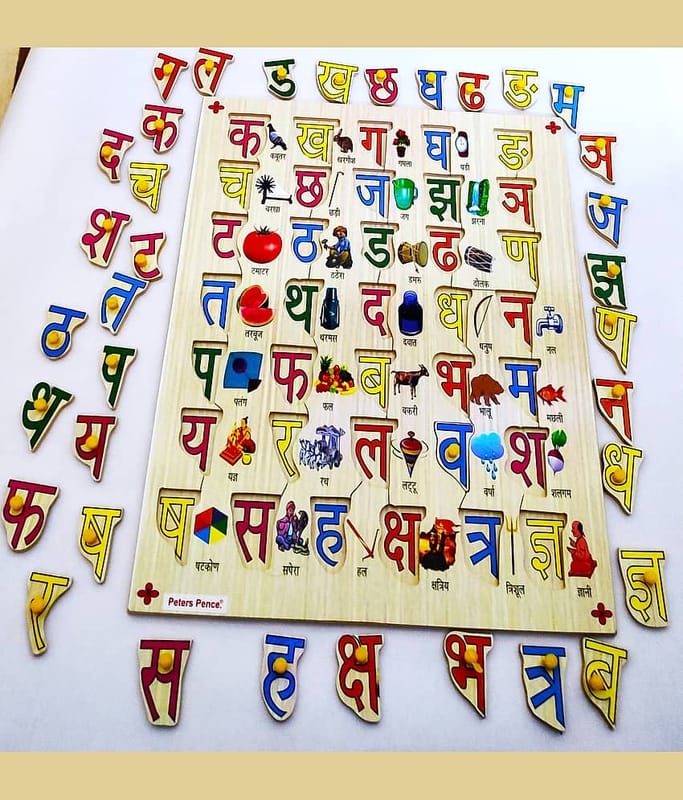 ग ल ड ख छ घ ढ ङ म
क
द
च
श
ट
त
ठ
प
थ
य
फ
ष
र
क ख ग घ ङ
कबूतर खरगोश गमला घडी
च छ ज झ ञ
चरखा छड़ी जग झरना
ट ठ ड ढ ण
टमाटर ठठेरा डमरू ढोलक
त थ द ध न
तरबूज थरमस दवात धनुष नल
प फ ब भ म
पतंग फल बकरी भालू मछली
य र ल व श
यज्ञ रथ लट्टू वर्षा शलगम
ष स ह क्ष त्र ज्ञ
षटकोण सपेरा हल क्षत्रिय त्रिशूल ज्ञानी
Peters Pence®
ञ
ज
झ
ण
न
ध
ज्ञ
स ह क्ष भ त्र ब